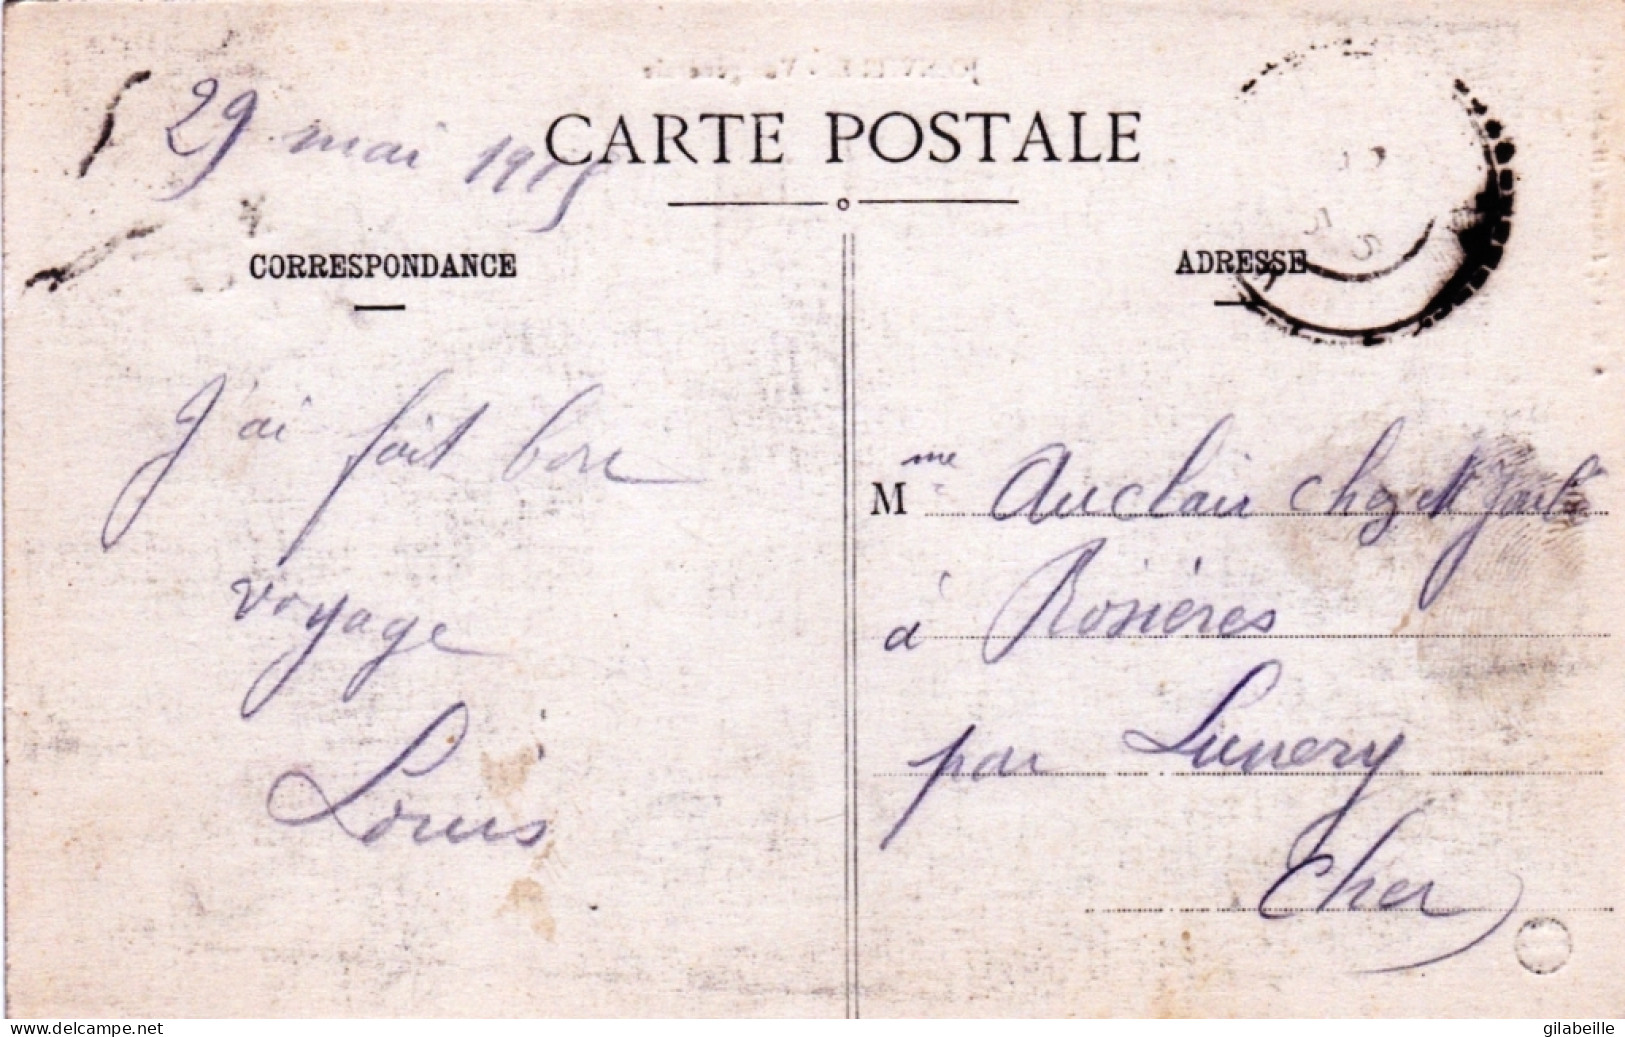 29 mai 1915
CARTE POSTALE
CORRESPONDANCE
ADRESSE
J'ai fait bon
voyage
Louis
Mme Auclair chez Mr
à Rosières
par Lunery
Cher
www.delcampe.net
gilabeille